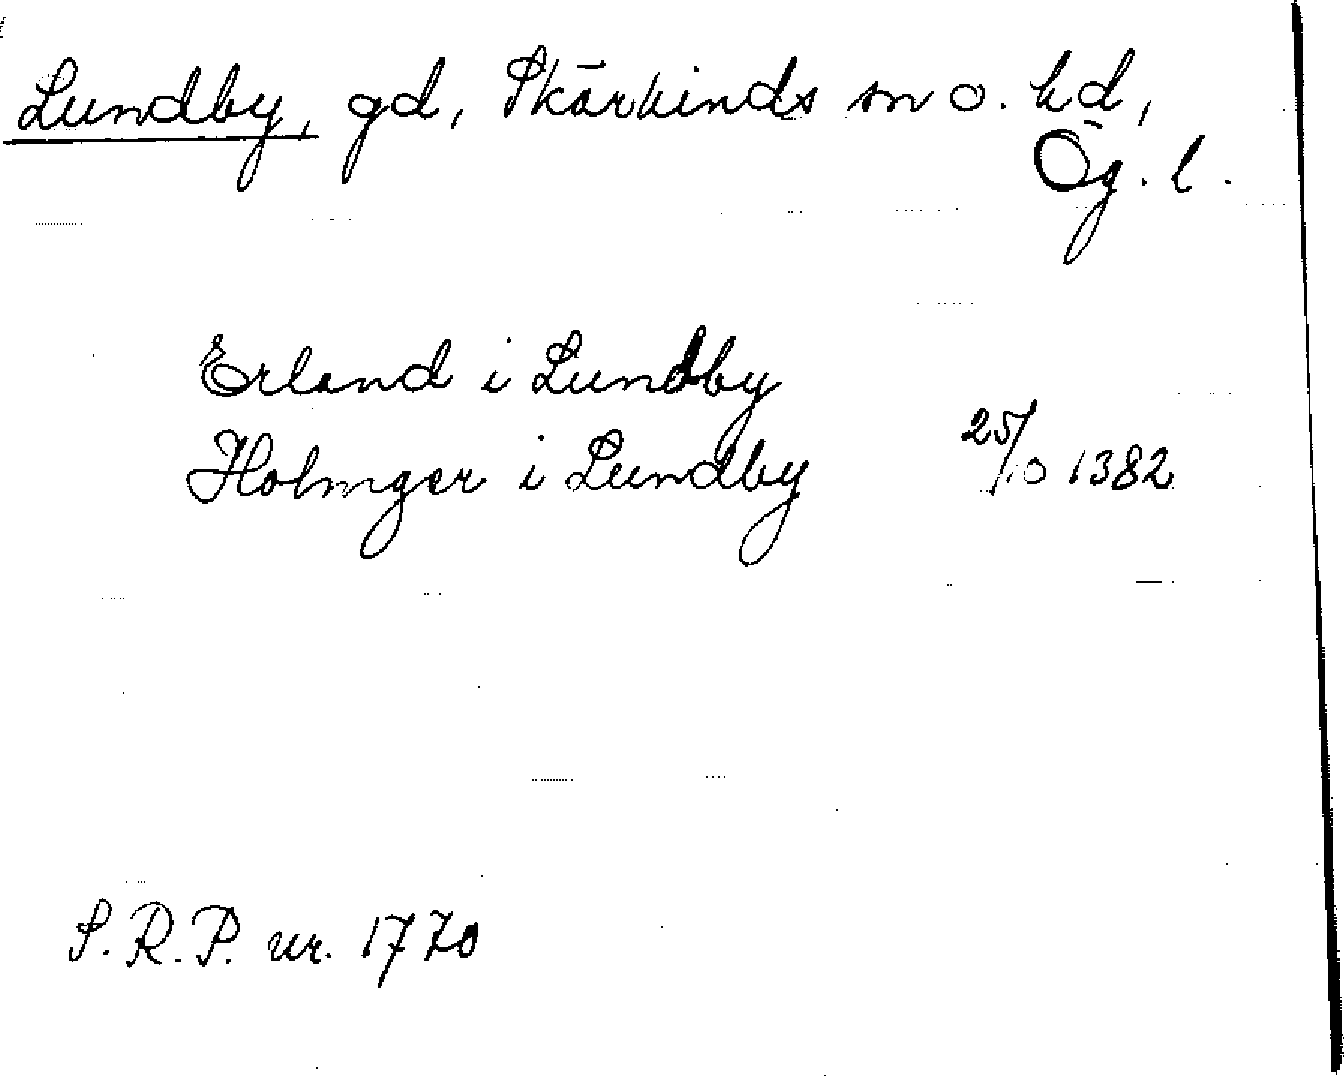 Lundby, gd, Skärkinds sn o. hd,
Ög. l.
Erland i Lundby
Holmger i Lundby 25/10 1382
S.R.P. nr. 1770